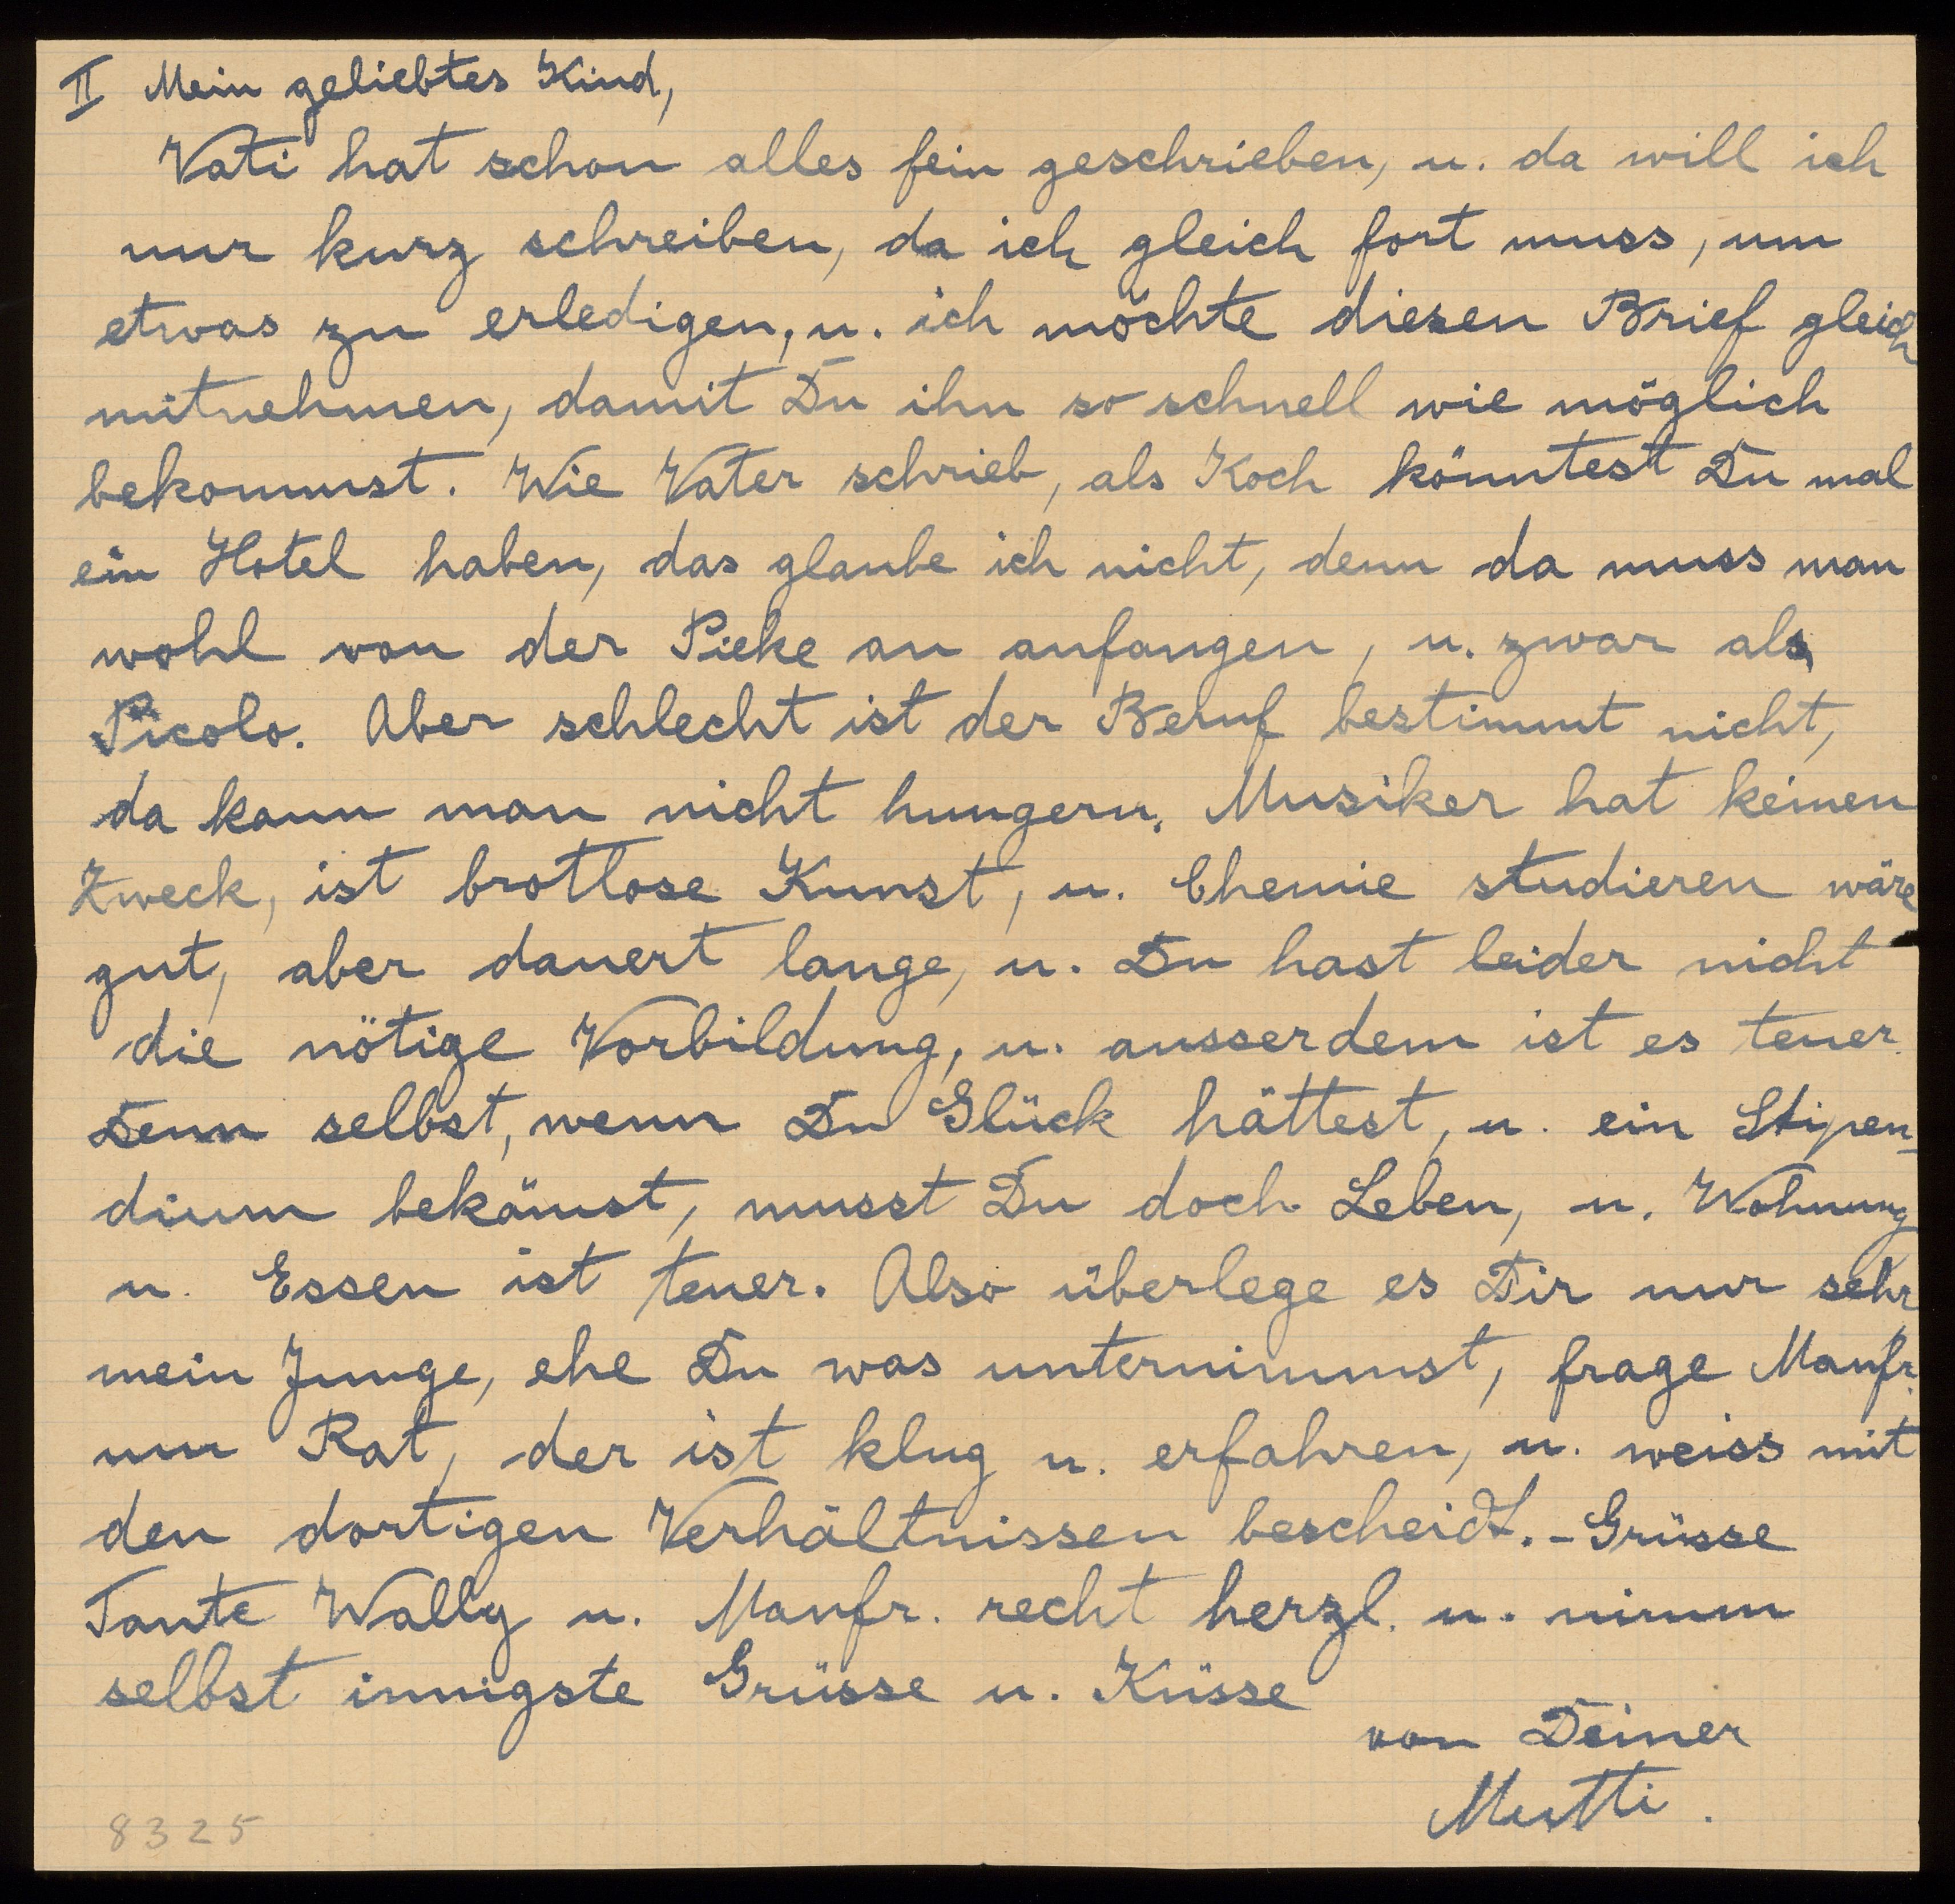 II Mein geliebtes Kind,
Vati hat schon alles fein geschrieben, u. da will ich
nur kurz schreiben, da ich gleich fort muss, um
etwas zu erledigen, u. ich möchte diesen Brief gleich
mitnehmen, damit Du ihn so schnell wie möglich
bekommst. Wie Vater schrieb, als Koch könntest Du mal
ein Hotel haben, das glaube ich nicht, denn da muss man
wohl von der Pieke an anfangen, u. zwar als
Picolo. Aber schlecht ist der Beruf bestimmt nicht,
da kann man nicht hungern. Musiker hat keinen
Zweck, ist brotlose Kunst, u. Chemie studieren wäre
gut, aber dauert lange, u. Du hast leider nicht
die nötige Vorbildung, u. ausserdem ist es teuer.
Denn selbst, wenn Du Glück hättest, u. ein Stipen-
dium bekämst, musst Du doch Leben, u. Wohnung
u. Essen ist teuer. Also überlege es Dir nur sehr
mein Junge, ehe Du was unternimmst, frage Manfr.
um Rat, der ist klug u. erfahren, u. weiss mit
den dortigen Verhältnissen bescheidt. - Grüsse
Tante Wally u. Manfr. recht herzl. u. nimm
selbst innigste Grüsse u. Küsse
von Deiner
Mutti.
8325